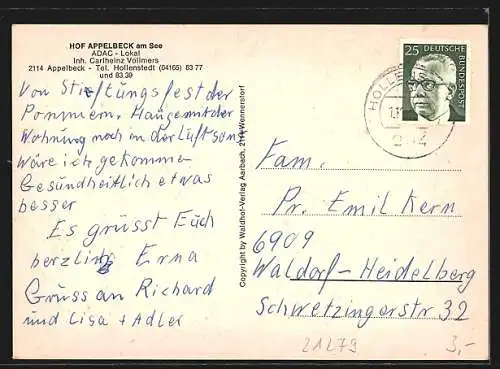 HOF APPELBECK am See
ADAC - Lokal
Inh. Carlheinz Vollmers
2114 Appelbeck - Tel. Hollenstedt (04165) 83 77
und 83 39
Von Stiftungsfest der
Pommern. Hänge mit der
Wohnung noch in der Luft sonst
wäre ich gekommen
Gesundheitlich etwas
besser
Es grüsst Euch
herzlich Erna
Gruss an Richard
und Lisa + Adler
Copyright by Waldhof-Verlag Aarbach, 2114 Wennerstorf
25
DEUTSCHE BUNDESPOST
HOLLE
Fam.
Pr. Emil Kern
6909
Walldorf-Heidelberg
Schwetzingerstr 32
21279
3,-